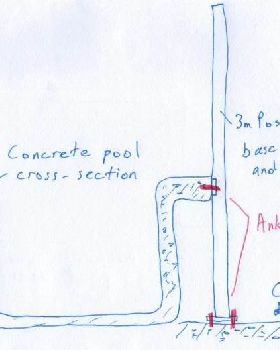 Concrete pool
cross-section
3m Pos
base
and
Ank